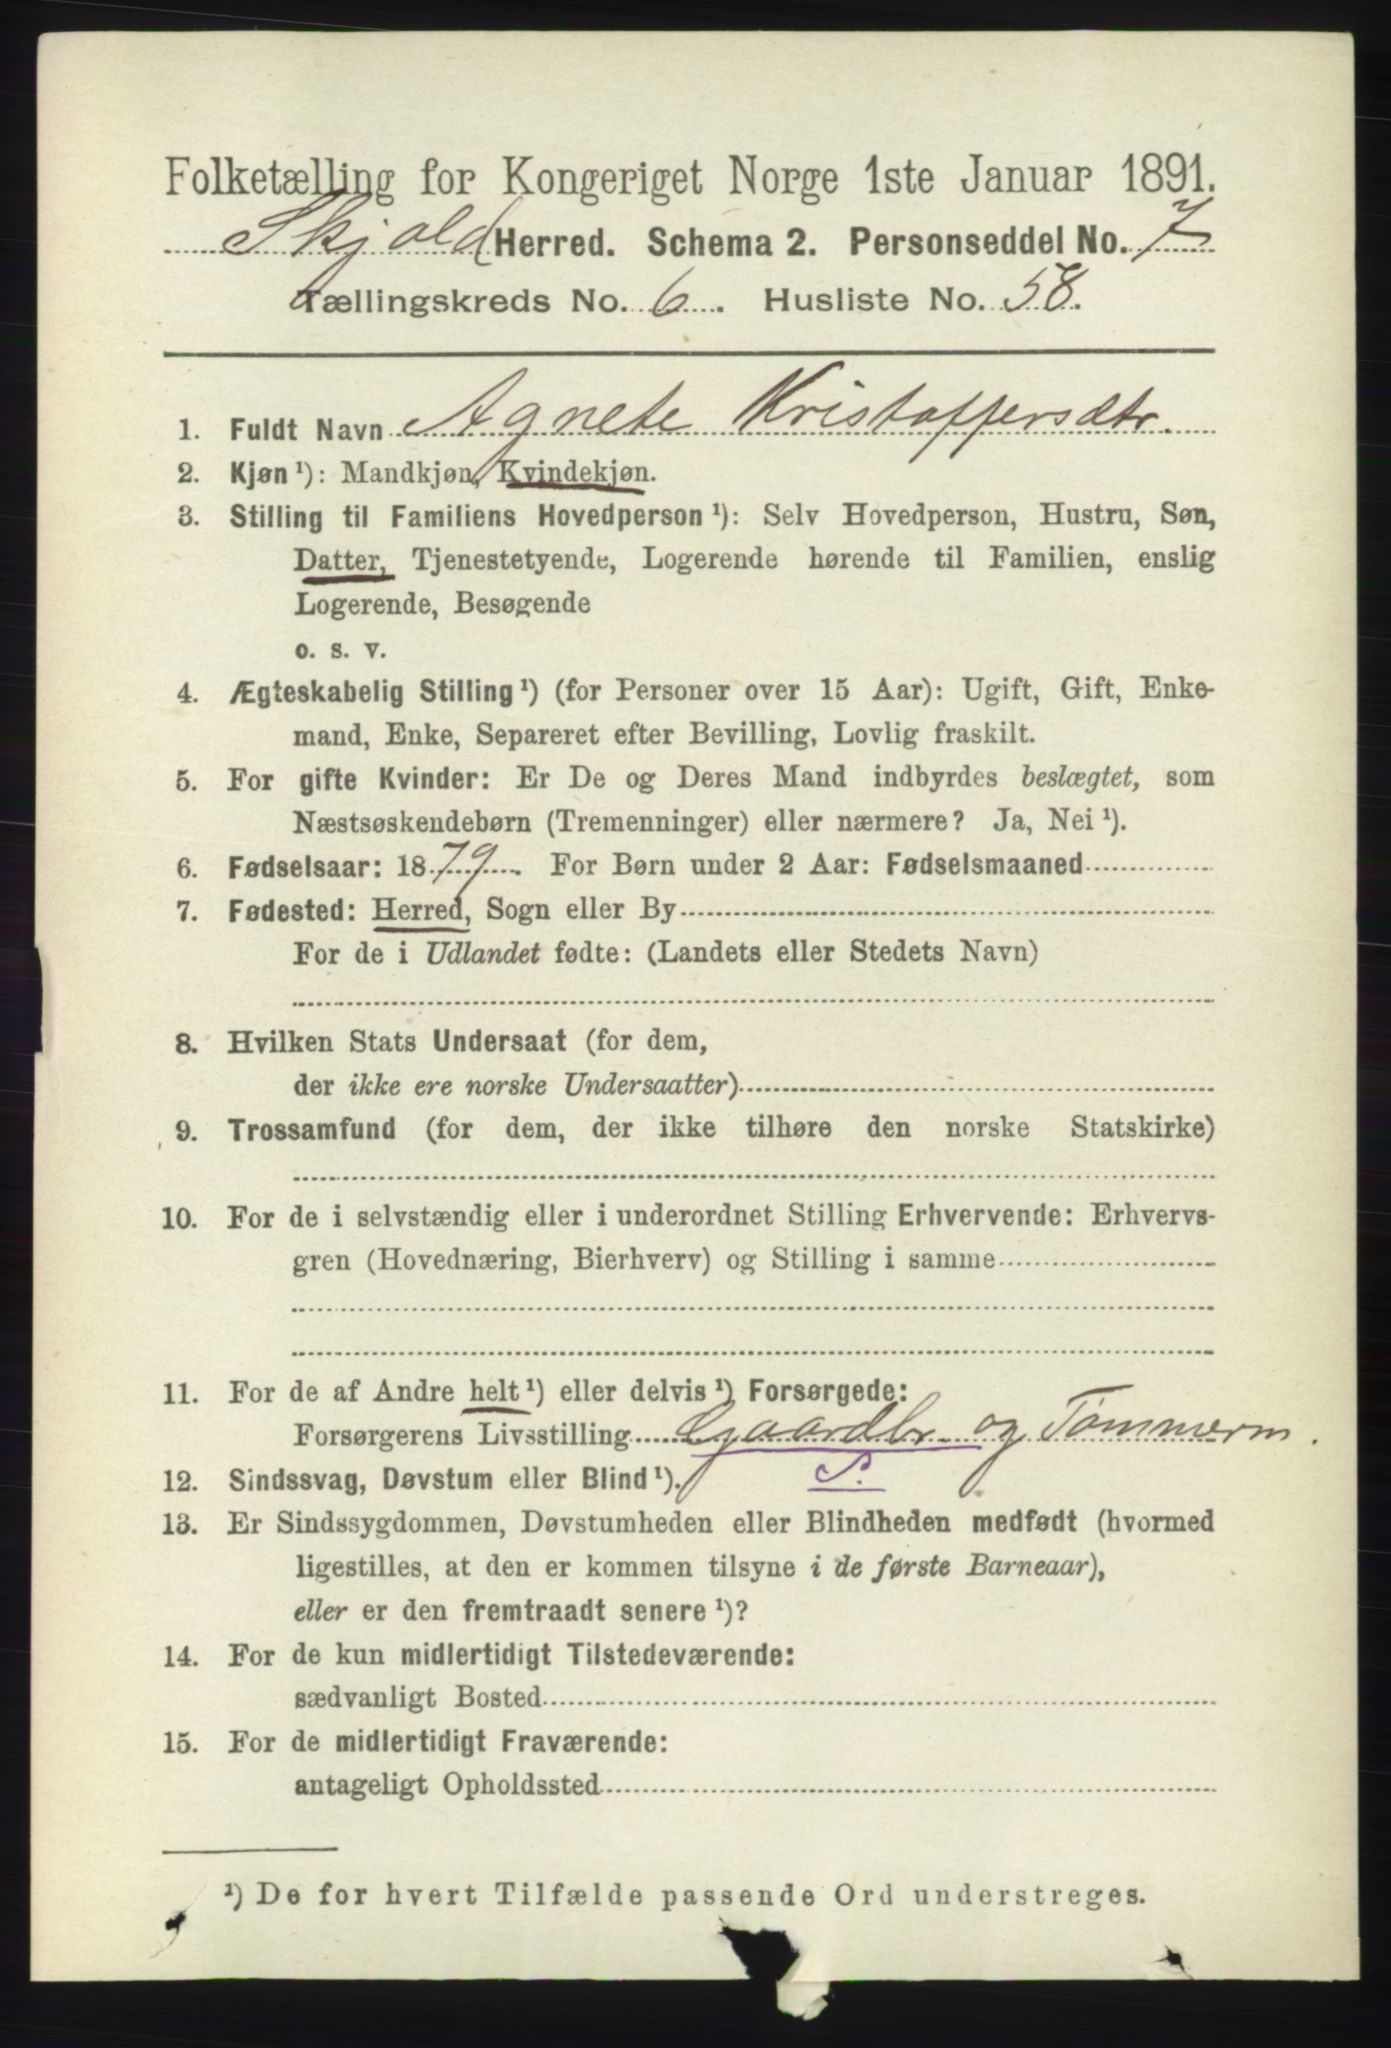 Folketælling for Kongeriget Norge 1ste Januar 1891.
Skjold Herred. Schema 2. Personseddel No. 7
Tællingskreds No. 6. Husliste No. 58.
1. Fuldt Navn Agnete Kristoffersdtr.
2. Kjøn ¹): Mandkjøn, Kvindekjøn.
3. Stilling til Familiens Hovedperson ¹): Selv Hovedperson, Hustru, Søn,
Datter, Tjenestetyende, Logerende hørende til Familien, enslig
Logerende, Besøgende
o. s. v.
4. Ægteskabelig Stilling ¹) (for Personer over 15 Aar): Ugift, Gift, Enke-
mand, Enke, Separeret efter Bevilling, Lovlig fraskilt.
5. For gifte Kvinder: Er De og Deres Mand indbyrdes beslægtet, som
Næstsøskendebørn (Tremenninger) eller nærmere? Ja, Nei ¹).
6. Fødselsaar: 1879. For Børn under 2 Aar: Fødselsmaaned
7. Fødested: Herred, Sogn eller By
For de i Udlandet fødte: (Landets eller Stedets Navn)
8. Hvilken Stats Undersaat (for dem,
der ikke ere norske Undersaatter)
9. Trossamfund (for dem, der ikke tilhøre den norske Statskirke)
10. For de i selvstændig eller i underordnet Stilling Erhvervende: Erhvervs-
gren (Hovednæring, Bierhverv) og Stilling i samme
11. For de af Andre helt ¹) eller delvis ¹) Forsørgede:
Forsørgerens Livsstilling Gaardbr. og Tømmerm.
12. Sindssvag, Døvstum eller Blind ¹). S.
13. Er Sindssygdommen, Døvstumheden eller Blindheden medfødt (hvormed
ligestilles, at den er kommen tilsyne i de første Barneaar),
eller er den fremtraadt senere ¹)?
14. For de kun midlertidigt Tilstedeværende:
sædvanligt Bosted
15. For de midlertidigt Fraværende:
antageligt Opholdssted
¹) De for hvert Tilfælde passende Ord understreges.